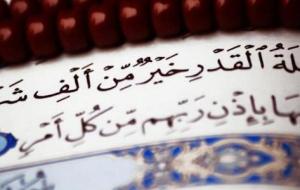 لَةُ ٱلْقَدْرِ خَيْرٌ مِّنْ أَلْفِ شَ
هَا بِإِذْنِ رَبِّهِم مِّن كُلِّ أَمْرٍ